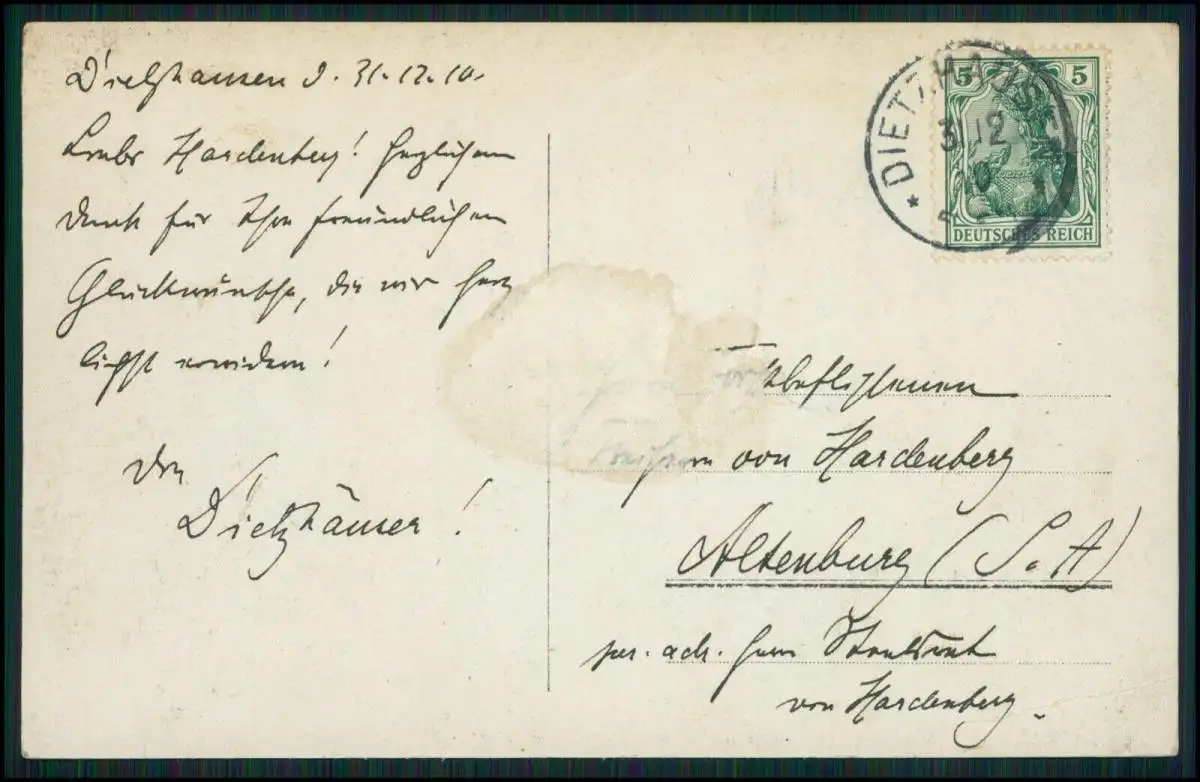 Dietzhausen d. 31.12.10.
Lieber Hardenberg! Herzlichen
Dank für Ihre freundlichen
Glückwünsche, die wir herz
lichst erwidern!
Die
Dietzhäuser!
DIETZHAUSEN
31 12
10
5 5
DEUTSCHES REICH
Forstbeflissenen
Freiherrn von Hardenberg
Altenburg (S. A)
per. adr. Herrn Staatsrat
von Hardenberg.